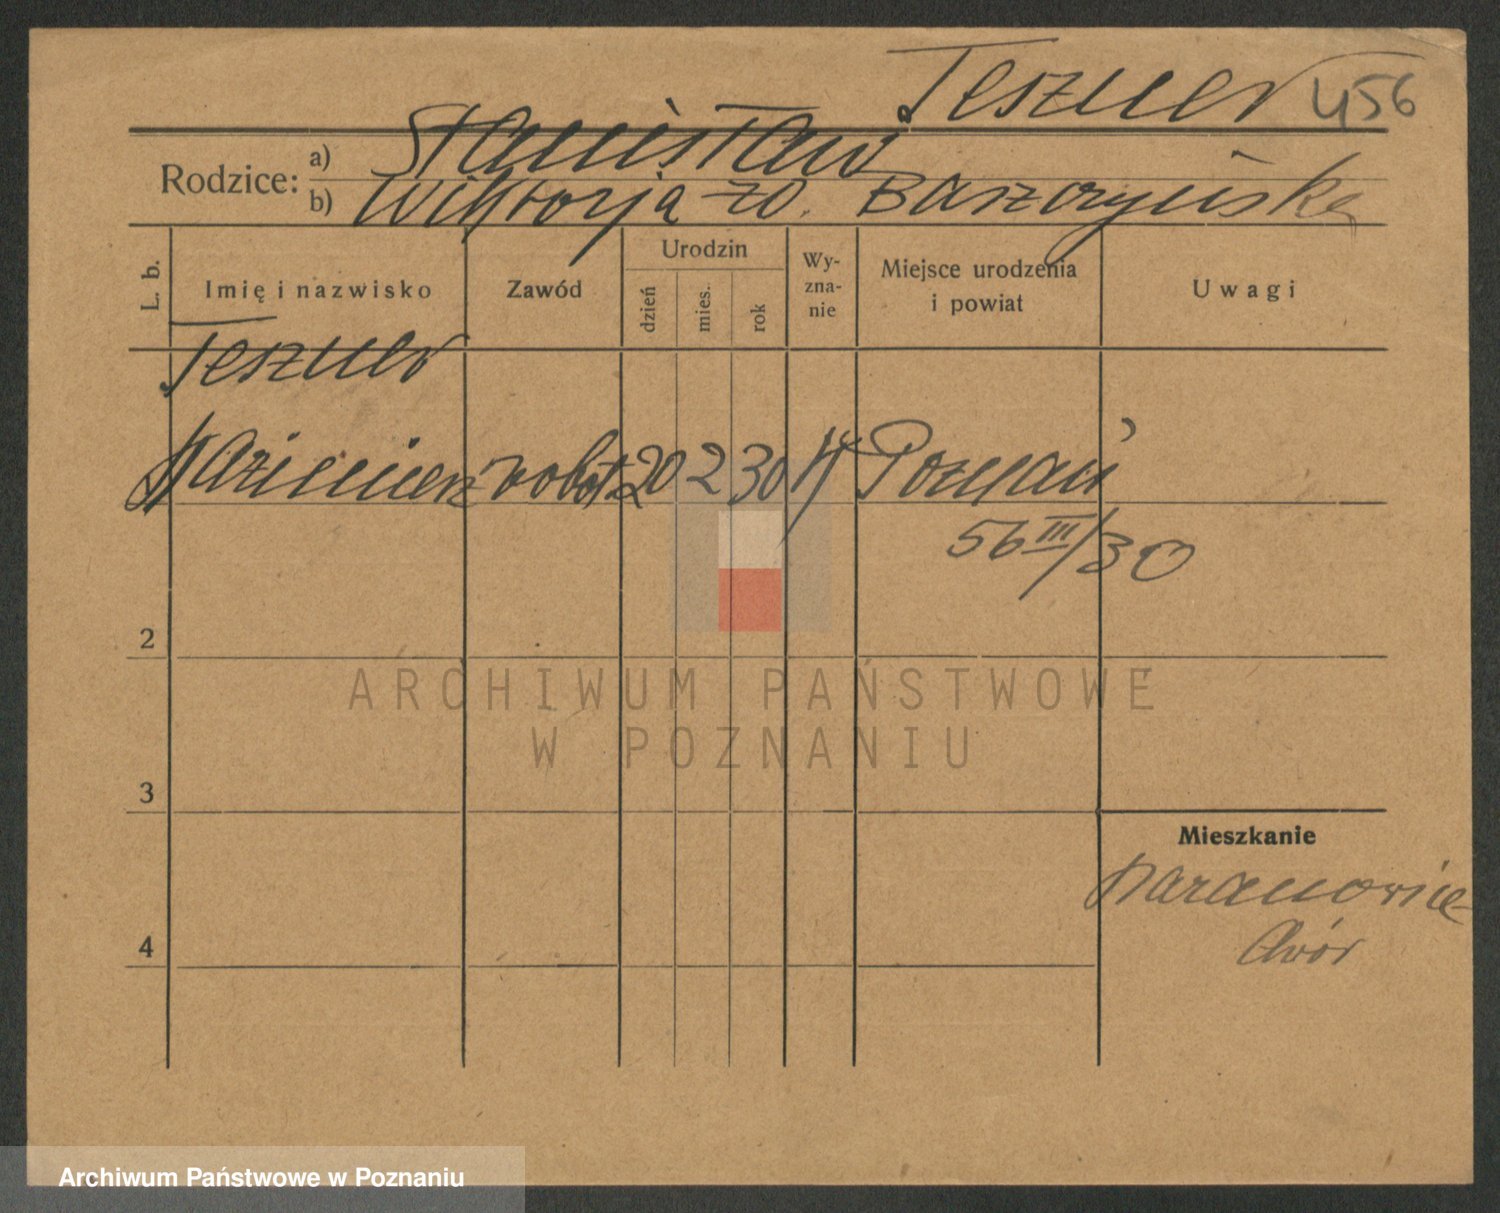 Teszner 456
Rodzice: a) Stanisław
b) Wiktorja zd. Baszczyńska
L. b.
Imię i nazwisko
Zawód
Urodzin
dzień
mies.
rok
Wy-
zna-
nie
Miejsce urodzenia
i powiat
Uwagi
Teszner
Kazimierz robot. 20 2 30 rk Poznań
56 III/30
2
3
4
Mieszkanie
Baranowice
dwór
ARCHIWUM PAŃSTWOWE
W POZNANIU
Archiwum Państwowe w Poznaniu